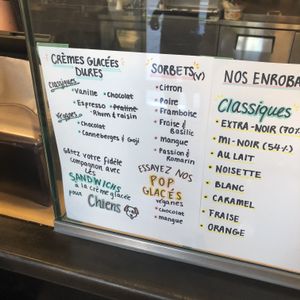 CRÈMES GLACÉES
DURES
Classiques
Vanille • Chocolat
• Espresso • Praline
Véganes • Rhum & raisin
• Chocolat
• Canneberges & Goji
Gâtez votre fidèle
compagnon avec les
SANDWICHS
à la crème glacée
pour Chiens
SORBETS(V)
• Citron
• Poire
• Framboise
• Fraise &
Basilic
• Mangue
• Passion &
Romarin
ESSAYEZ NOS
POP
GLACÉS
véganes
• chocolat
• mangue
NOS ENROBA
Classiques
• EXTRA-NOIR (70%
• MI-NOIR (54%)
• AU LAIT
• NOISETTE
• BLANC
• CARAMEL
• FRAISE
• ORANGE